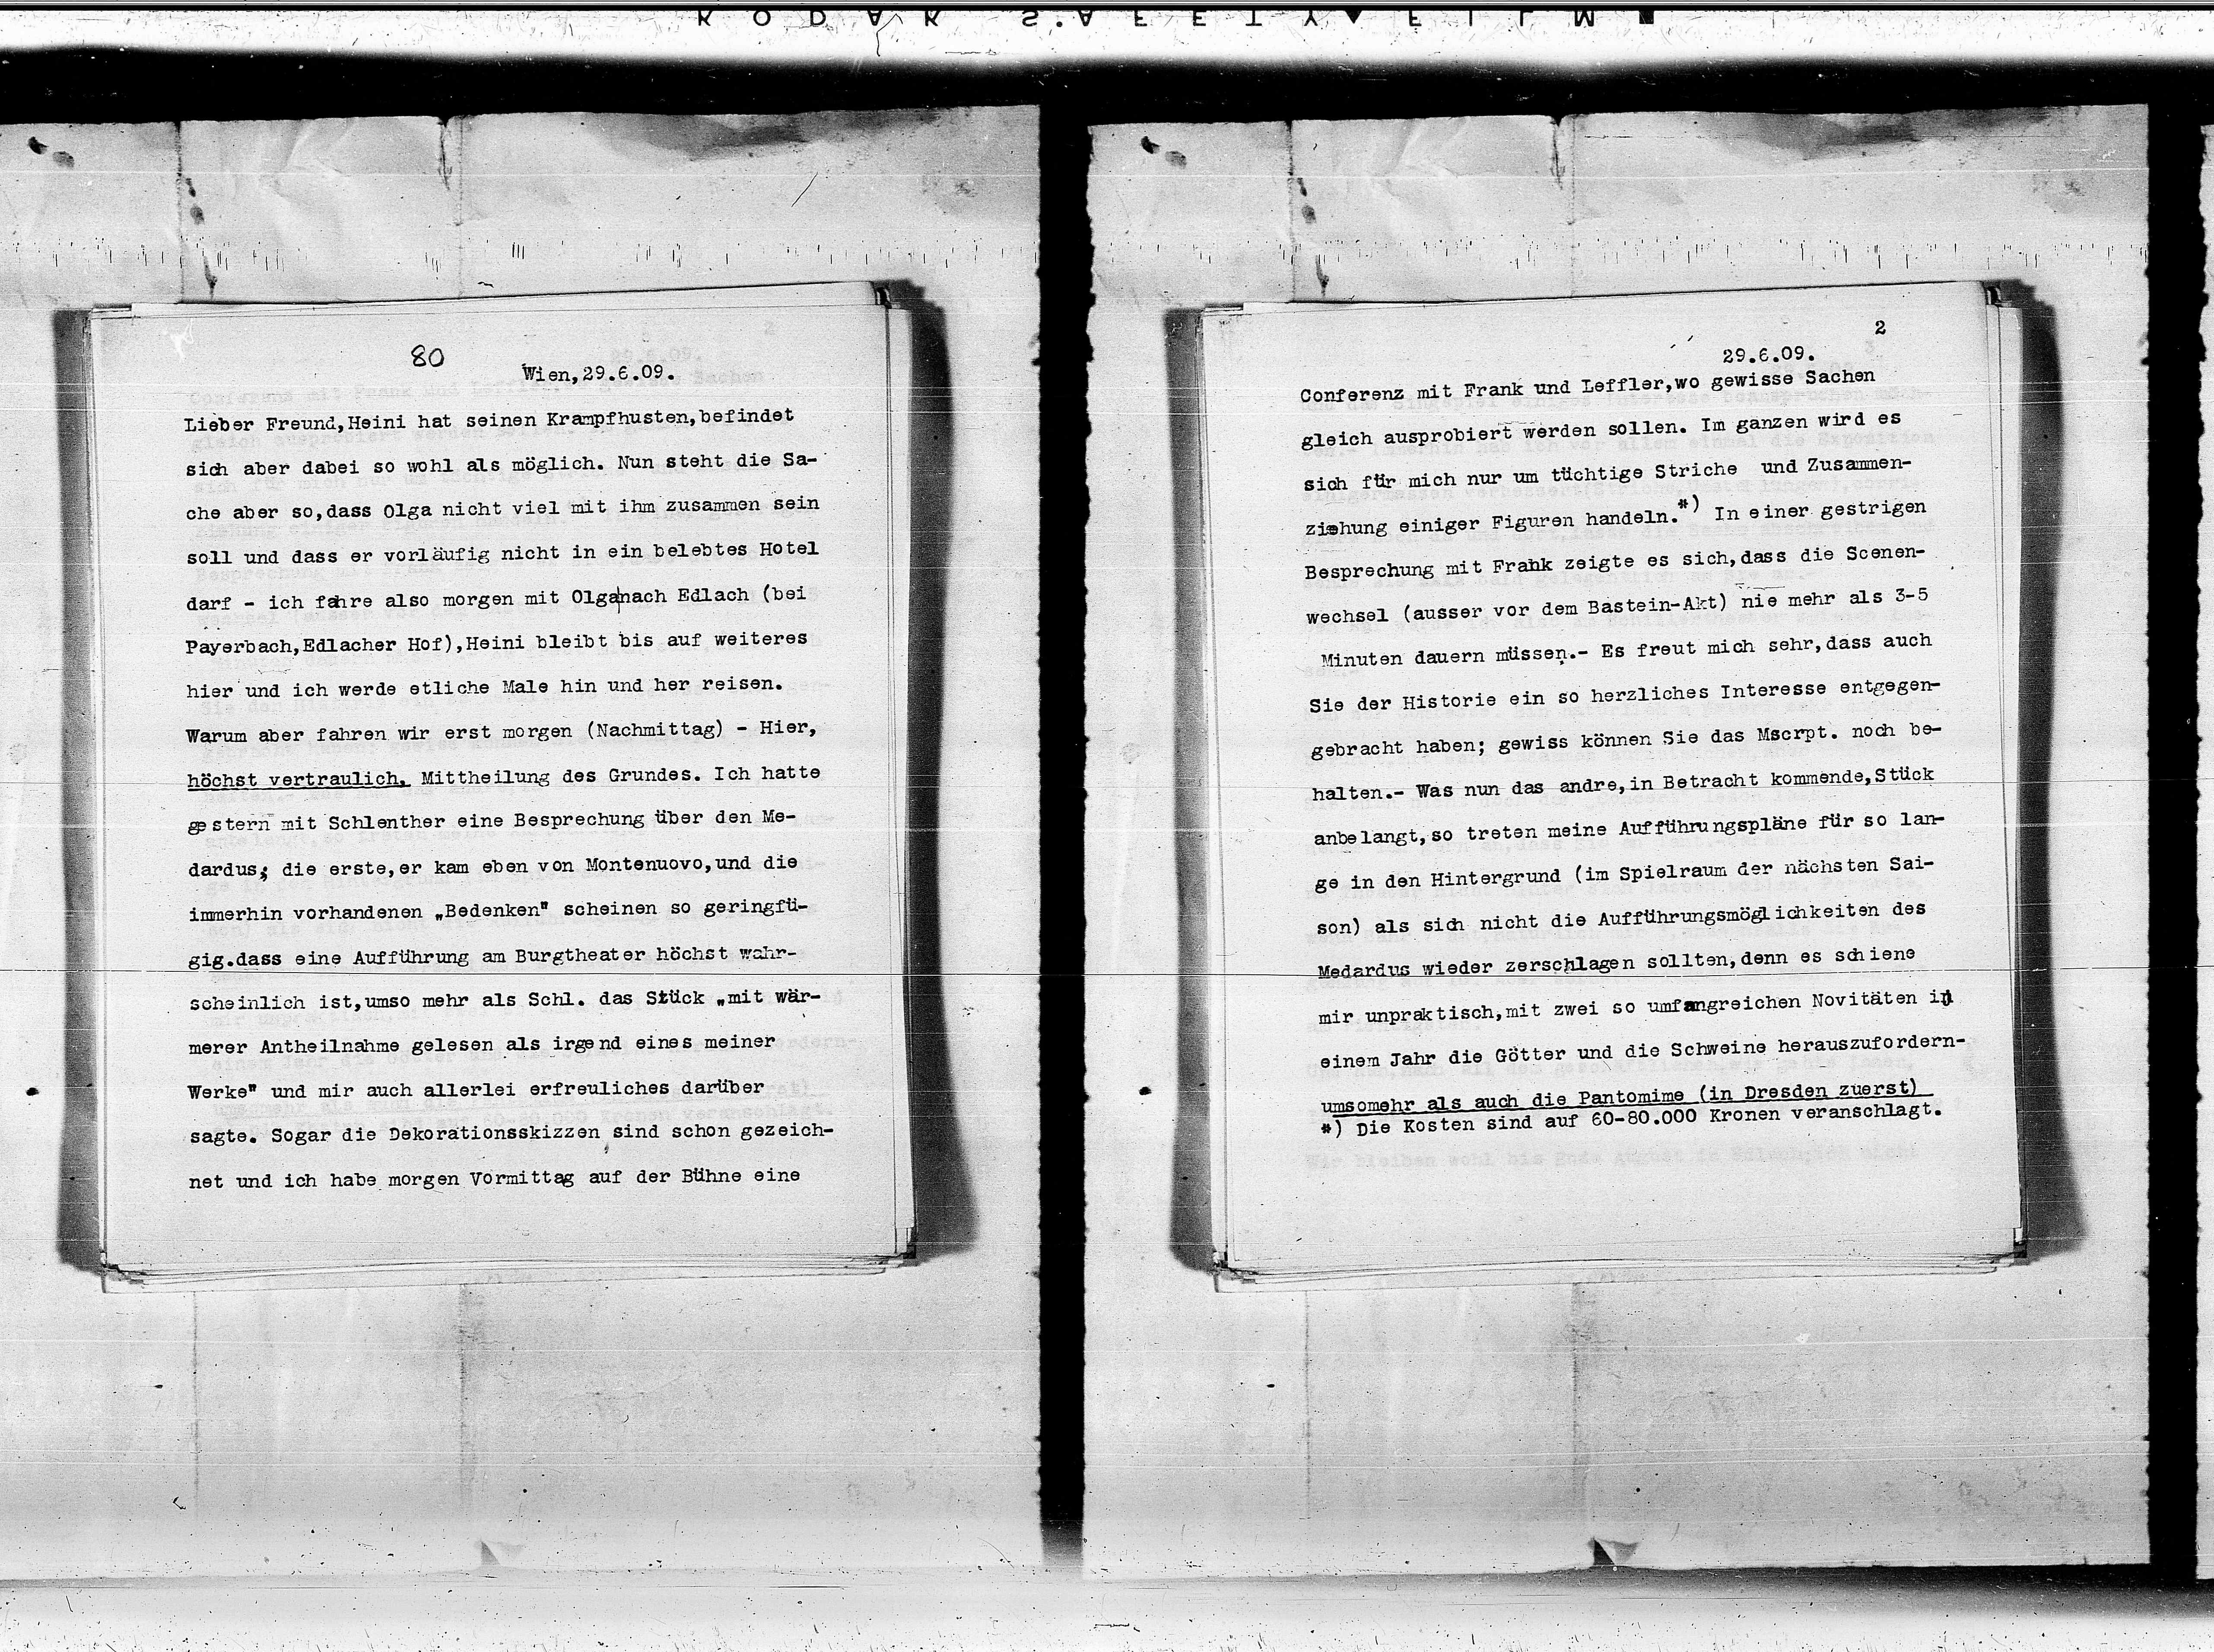 KODAK SAFETY FILM
80
Wien,29.6.09.
Lieber Freund,Heini hat seinen Krampfhusten,befindet
sich aber dabei so wohl als möglich. Nun steht die Sa-
che aber so,dass Olga nicht viel mit ihm zusammen sein
soll und dass er vorläufig nicht in ein belebtes Hotel
darf - ich fahre also morgen mit Olga|nach Edlach (bei
Payerbach,Edlacher Hof),Heini bleibt bis auf weiteres
hier und ich werde etliche Male hin und her reisen.
Warum aber fahren wir erst morgen (Nachmittag) - Hier,
höchst vertraulich, Mittheilung des Grundes. Ich hatte
gestern mit Schlenther eine Besprechung über den Me-
dardus; die erste,er kam eben von Montenuovo,und die
immerhin vorhandenen „Bedenken" scheinen so geringfü-
gig.dass eine Aufführung am Burgtheater höchst wahr-
scheinlich ist,umso mehr als Schl. das Stück „mit wär-
merer Antheilnahme gelesen als irgend eines meiner
Werke" und mir auch allerlei erfreuliches darüber
sagte. Sogar die Dekorationsskizzen sind schon gezeich-
net und ich habe morgen Vormittag auf der Bühne eine
2
29.6.09.
Conferenz mit Frank und Leffler,wo gewisse Sachen
gleich ausprobiert werden sollen. Im ganzen wird es
sich für mich nur um tüchtige Striche und Zusammen-
ziehung einiger Figuren handeln.*) In einer gestrigen
Besprechung mit Frank zeigte es sich,dass die Scenen-
wechsel (ausser vor dem Bastein-Akt) nie mehr als 3-5
Minuten dauern müssen.- Es freut mich sehr,dass auch
Sie der Historie ein so herzliches Interesse entgegen-
gebracht haben; gewiss können Sie das Mscrpt. noch be-
halten.- Was nun das andre,in Betracht kommende,Stück
anbelangt,so treten meine Aufführungspläne für so lan-
ge in den Hintergrund (im Spielraum der nächsten Sai-
son) als sich nicht die Aufführungsmöglichkeiten des
Medardus wieder zerschlagen sollten,denn es schiene
mir unpraktisch,mit zwei so umfangreichen Novitäten in
einem Jahr die Götter und die Schweine herauszufordern-
umsomehr als auch die Pantomime (in Dresden zuerst)
*) Die Kosten sind auf 60-80.000 Kronen veranschlagt.